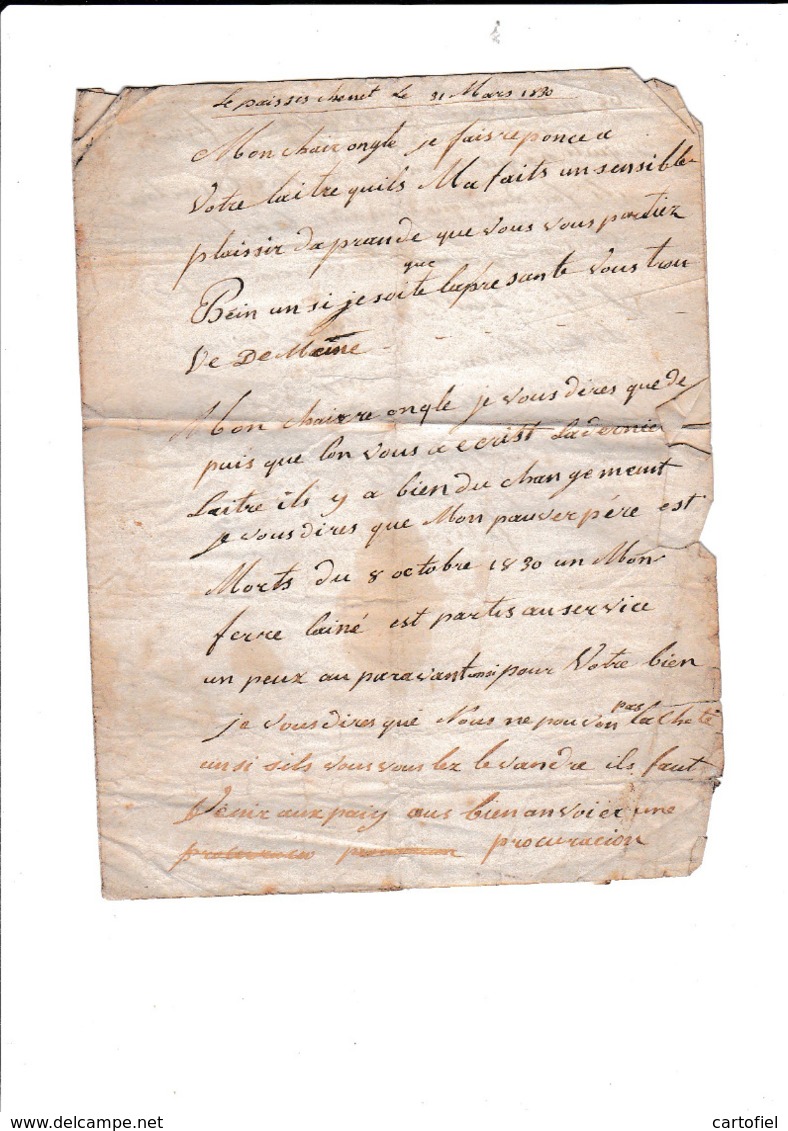 Le paisses chenet Le 31 Mars 1830
Mon chair ongle je fais reponce a
Votre laitre quils Ma faits un sensible
plaissir daprande que vous vous portiez
Bein un si je soite que lapresante vous trou
Ve De Maime
Mon chairre ongle je vous dires que de
puis que lon vous a ecrist Ladernier
Laitre ils y a bien du changement
je vous dires que Mon pauver pére est
Morts du 8 octobre 1830 un Mon
ferre lainé est partis au service
un peux au paravant unsi pour Votre bien
je vous dires que Nous ne pouvon pas lacheté
unsi sils vous voulez le vandre ils faut
Venir aux paiy aus bien anvoier une
procuracion
www.delcampe.net
cartofiel